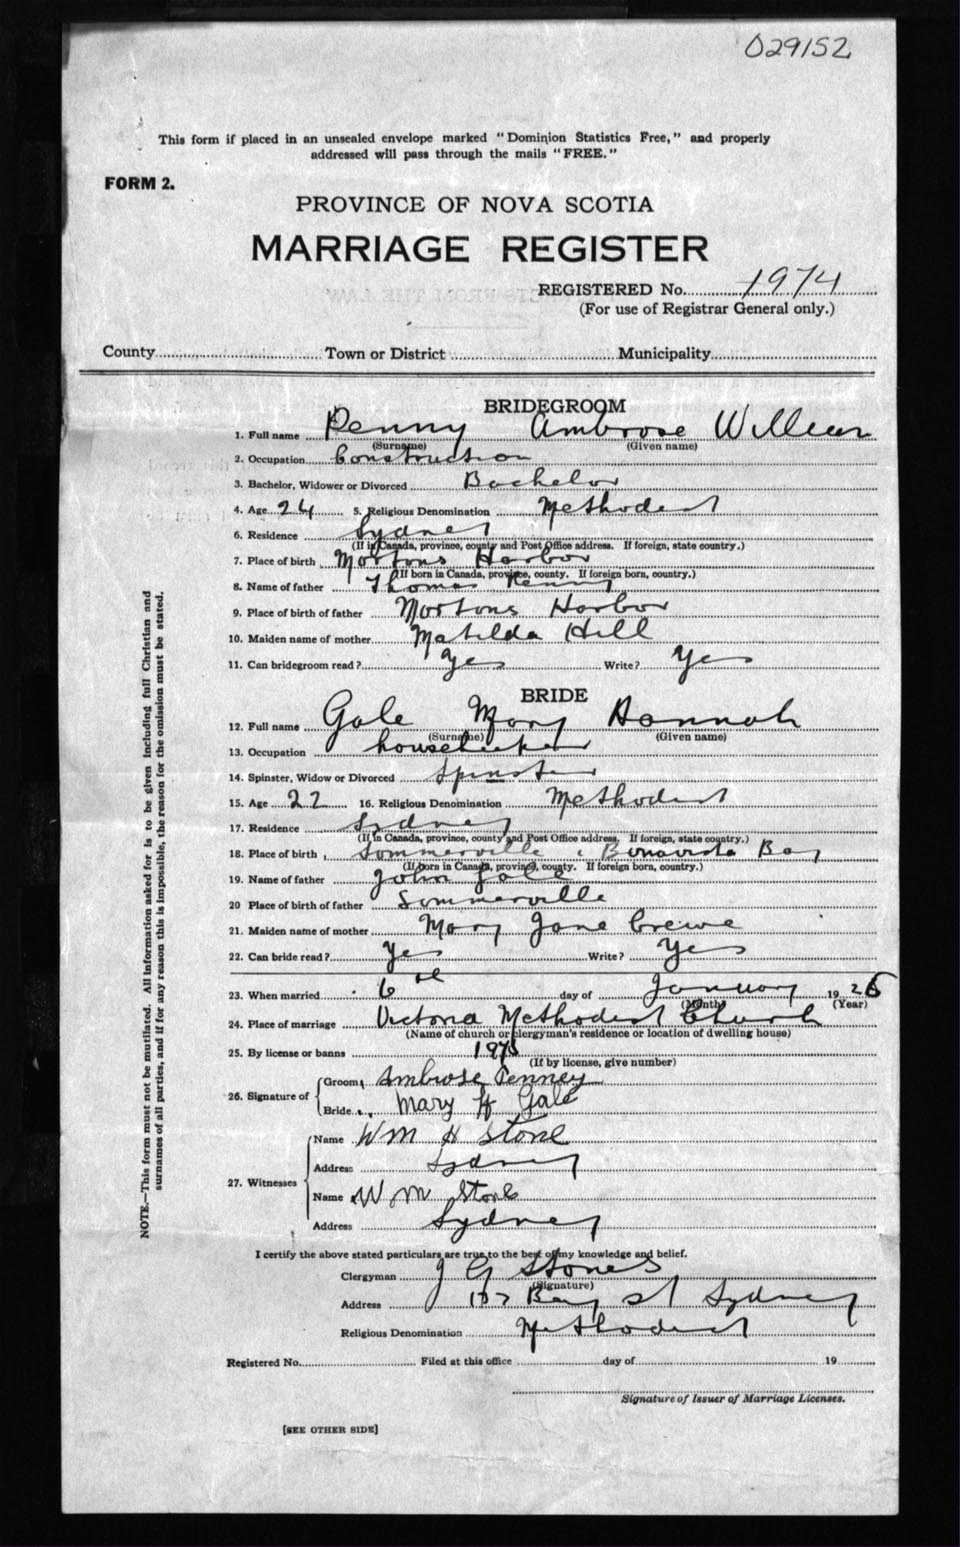 029152
This form if placed in an unsealed envelope marked "Dominion Statistics Free," and properly
addressed will pass through the mails "FREE."
FORM 2.
PROVINCE OF NOVA SCOTIA
MARRIAGE REGISTER
REGISTERED No. 1974
(For use of Registrar General only.)
County Town or District Municipality
BRIDEGROOM
1. Full name Penny Ambrose William
(Surname) (Given name)
2. Occupation Construction
3. Bachelor, Widower or Divorced Bachelor
4. Age 24 5. Religious Denomination Methodist
6. Residence Sydney
(If in Canada, province, county and Post Office address. If foreign, state country.)
7. Place of birth Mortons Harbor
(If born in Canada, province, county. If foreign born, country.)
8. Name of father Thomas Penny
9. Place of birth of father Mortons Harbor
10. Maiden name of mother Matilda Hill
11. Can bridegroom read? Yes Write? Yes
BRIDE
12. Full name Gale Mary Hannah
(Surname) (Given name)
13. Occupation housekeeper
14. Spinster, Widow or Divorced Spinster
15. Age 22 16. Religious Denomination Methodist
17. Residence Sydney
(If in Canada, province, county and Post Office address. If foreign, state country.)
18. Place of birth Sommerville Bonavista Bay
(If born in Canada, province, county. If foreign born, country.)
19. Name of father John Gale
20 Place of birth of father Sommerville
21. Maiden name of mother Mary Jane Crewe
22. Can bride read? Yes Write? Yes
23. When married 6 day of January 1926
(Month) (Year)
24. Place of marriage Victoria Methodist Church
(Name of church or clergyman's residence or location of dwelling house)
25. By license or banns
(If by license, give number)
26. Signature of Groom Ambrose Penney
Bride Mary H Gale
27. Witnesses Name Wm H Stone
Address Sydney
Name Wm Stone
Address Sydney
I certify the above stated particulars are true to the best of my knowledge and belief.
Clergyman J G Stones
(Signature)
Address Bay St Sydney
Religious Denomination Methodist
Registered No. Filed at this office day of 19
Signature of Issuer of Marriage Licenses.
[SEE OTHER SIDE]
NOTE.—This form must not be mutilated. All information asked for is to be given including full Christian and
surnames of all parties, and if for any reason this is impossible, the reason for the omission must be stated.